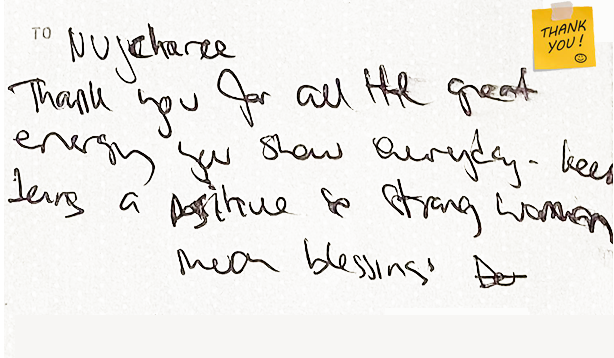 TO Nuycharee
THANK
YOU!
Thank you for all the great
energy you show everyday. keep
being a positive & strong woman
much blessings